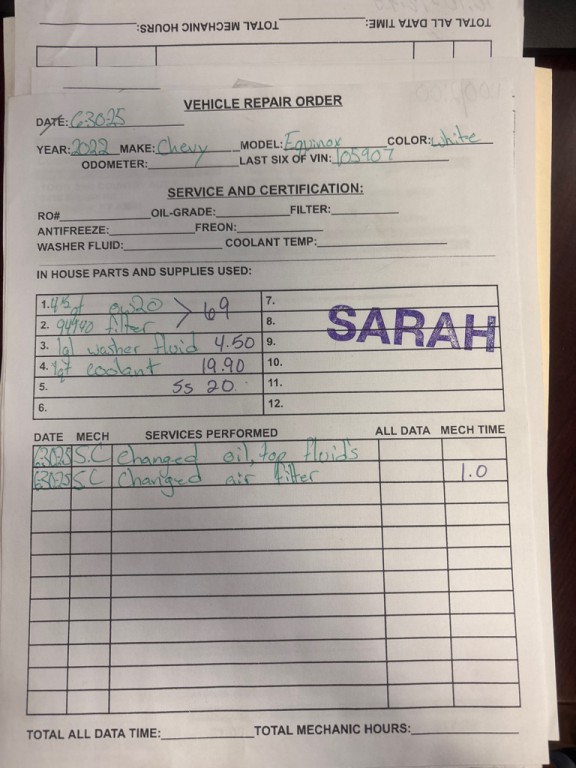 TOTAL ALL DATA TIME: TOTAL MECHANIC HOURS:
VEHICLE REPAIR ORDER
DATE: 63025
YEAR: 2022 MAKE: Chevy MODEL: Equinox COLOR: White
ODOMETER: LAST SIX OF VIN: 105907
SERVICE AND CERTIFICATION:
RO# OIL-GRADE: FILTER:
ANTIFREEZE: FREON:
WASHER FLUID: COOLANT TEMP:
IN HOUSE PARTS AND SUPPLIES USED:
1. 0w20 > 69 7.
2. filter 8.
3. 1gl washer fluid 4.50 9.
SARAH
4. 1qt coolant 19.90 10.
5. SS 20. 11.
6. 12.
DATE MECH SERVICES PERFORMED ALL DATA MECH TIME
63025 S.C Changed oil, top fluids
63025 SC Changed air filter 1.0
TOTAL ALL DATA TIME: TOTAL MECHANIC HOURS: